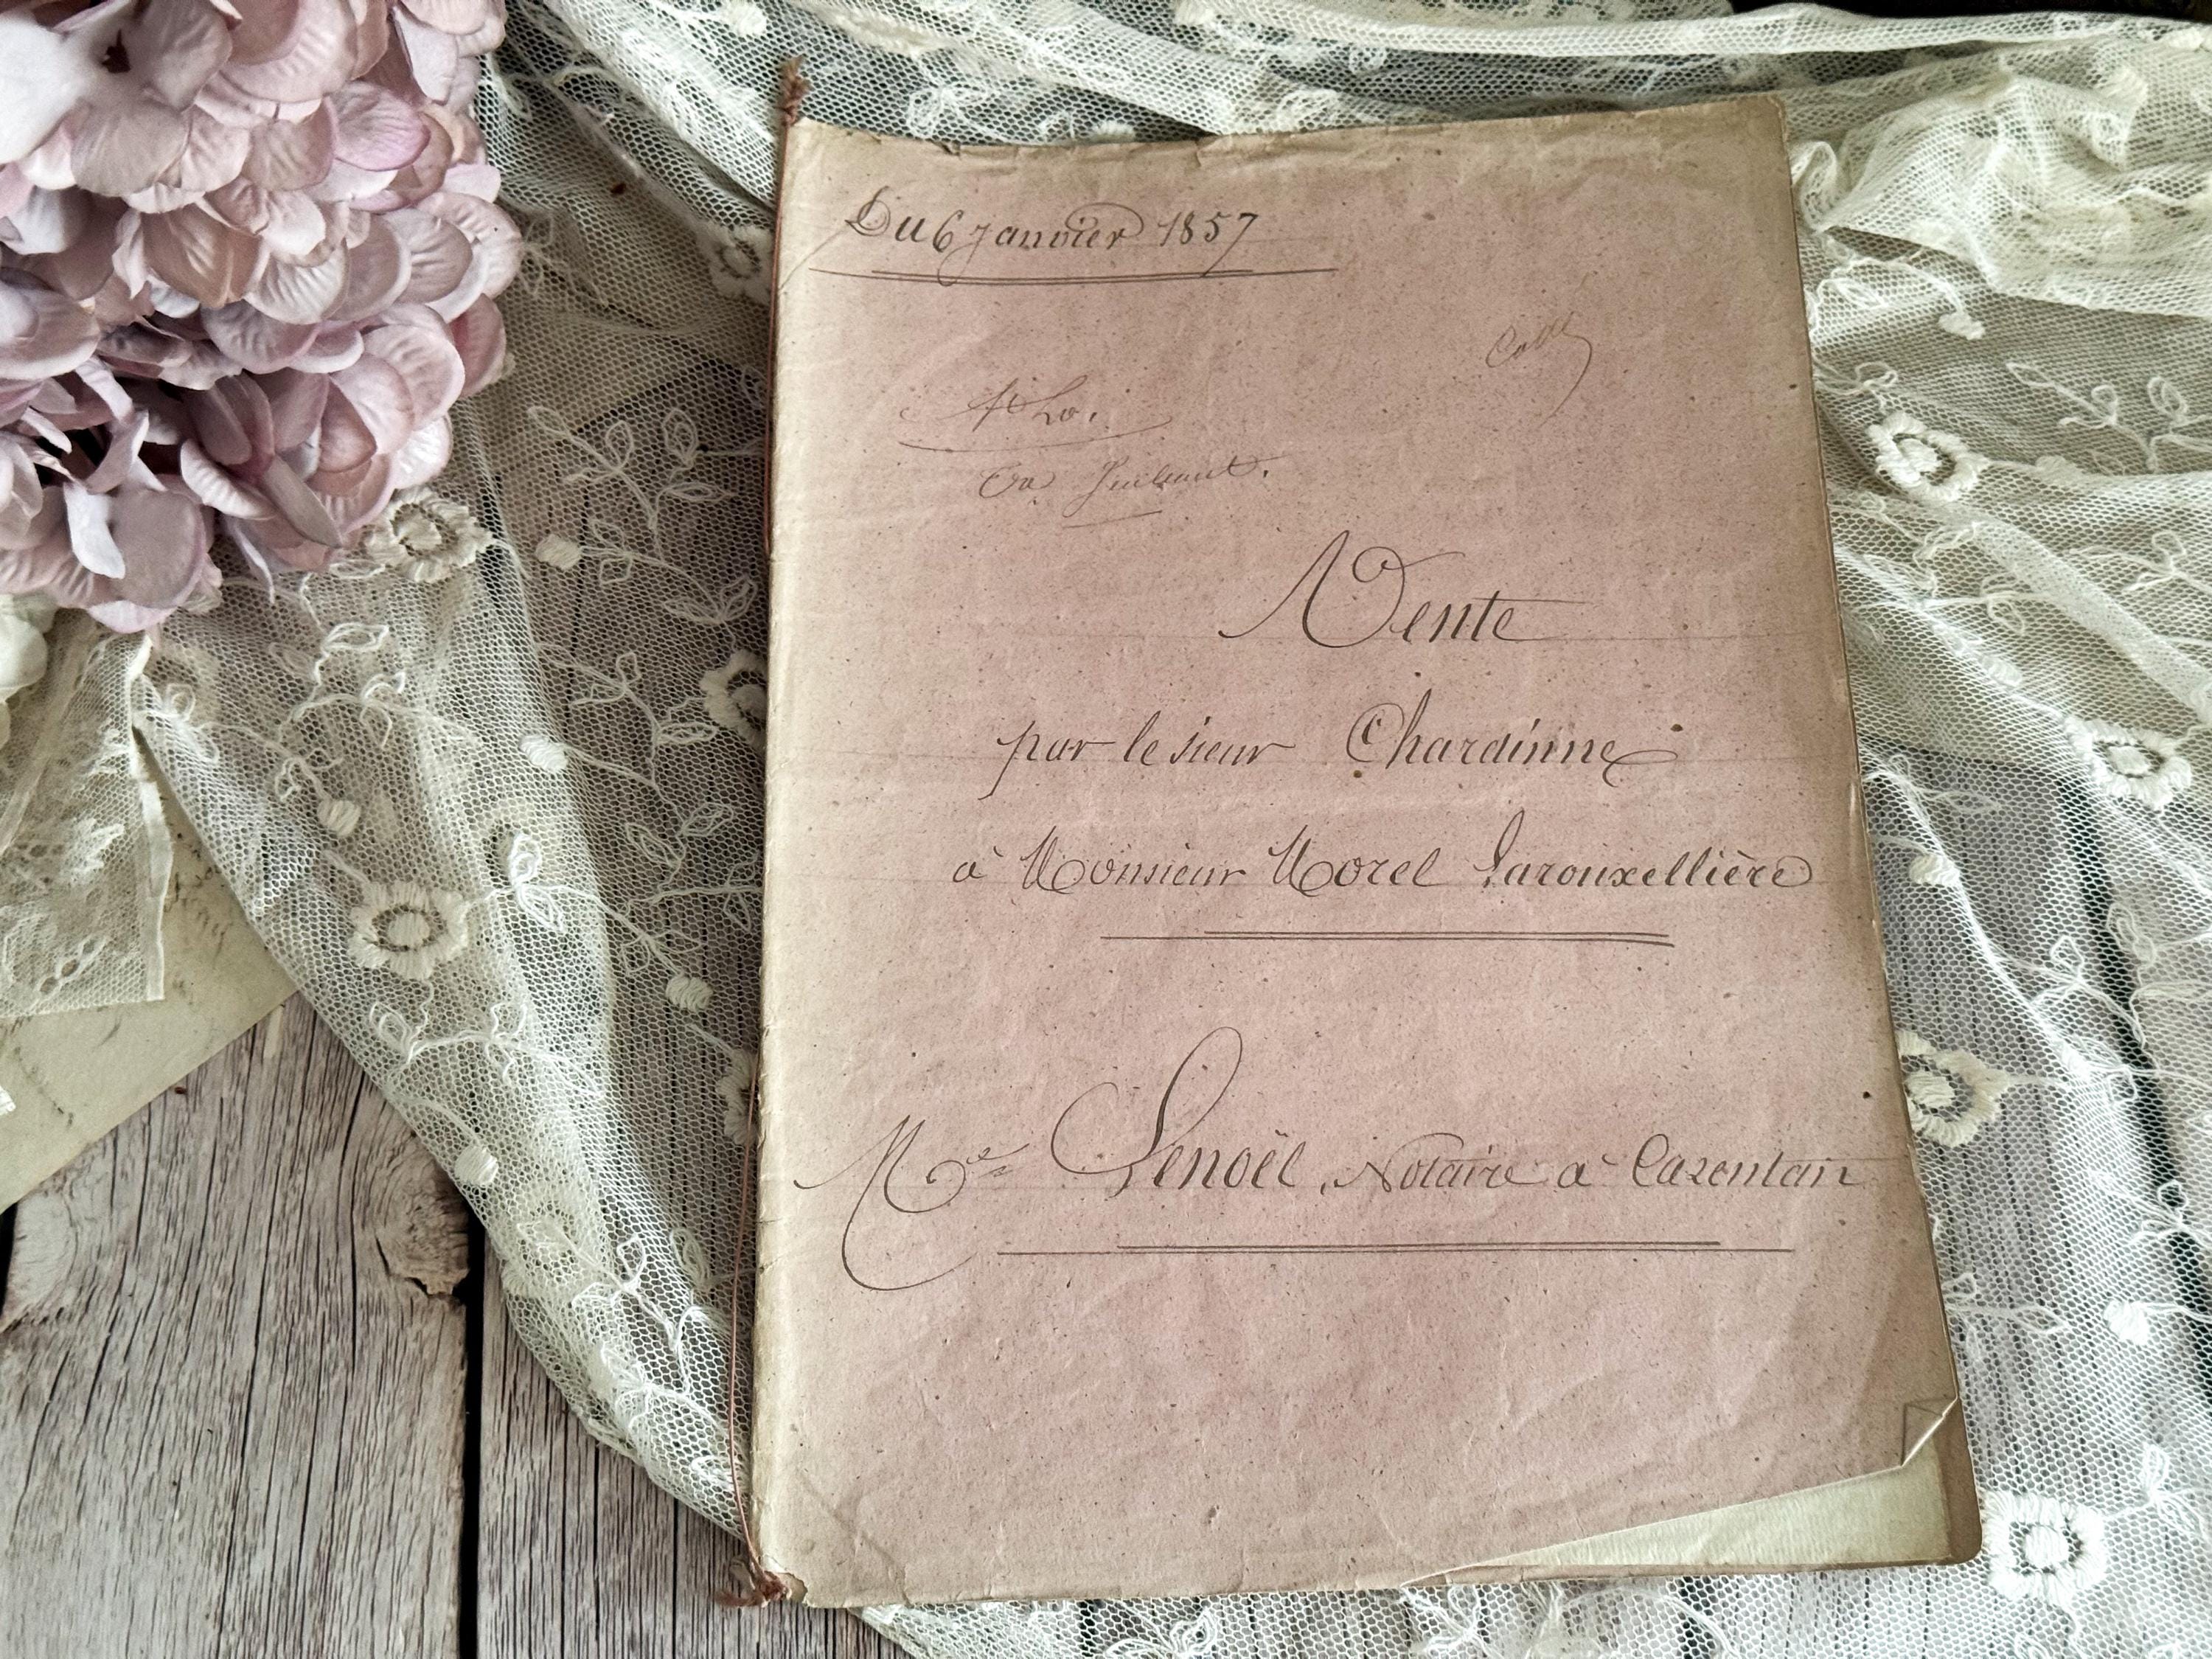 Du 6 janvier 1857
St Lo.
Vente
par le sieur Chardinne
à Monsieur Morel Larouxellière
Me Lenoël, Notaire à Carentan